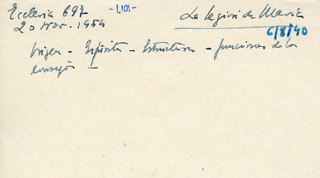 Ecclesia 687 -1,101-
20 Nov. 1954
La legión de María
6/8/40
Origen - Espíritu - Estructura - funciones de los
consejos -